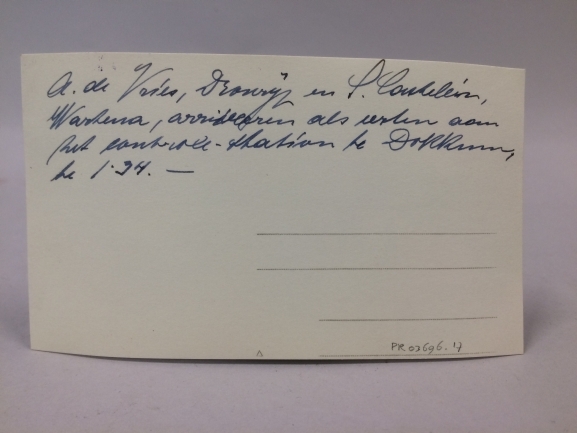 A. de Vries, Dronrijp en S. Castelein,
Wartena, arriveeren als eersten aan
het controle-station te Dokkum,
te 1.34. —
PR 03696.17